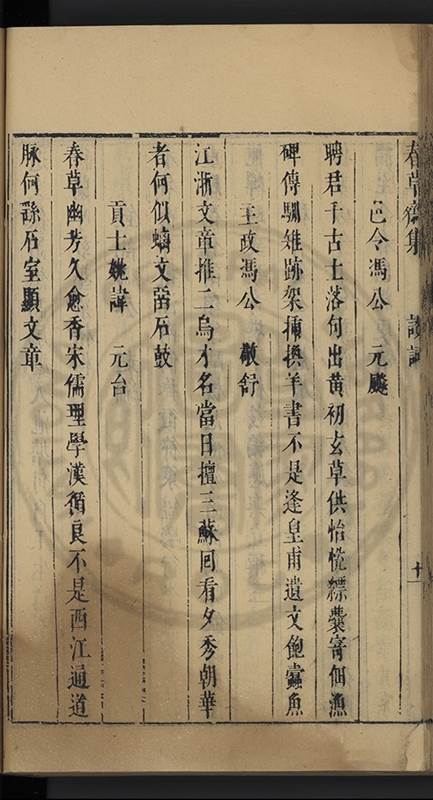 春草齋集
十一
邑令馮公 元颷
聘君千古士落句出黄初玄草供怡悅縹囊寄佃漁
碑傳馴雉跡架換羊書不是逢皇甫遺文飽蠹魚
主政馮公 敬舒
江浙文章推二烏才名當日擅三蘇囘看夕秀朝華
者何似螭文留石鼓
貢士姚諱 元台
春草幽芳久愈香宋儒理學漢循良不是西江通道
脉何繇石室顯文章